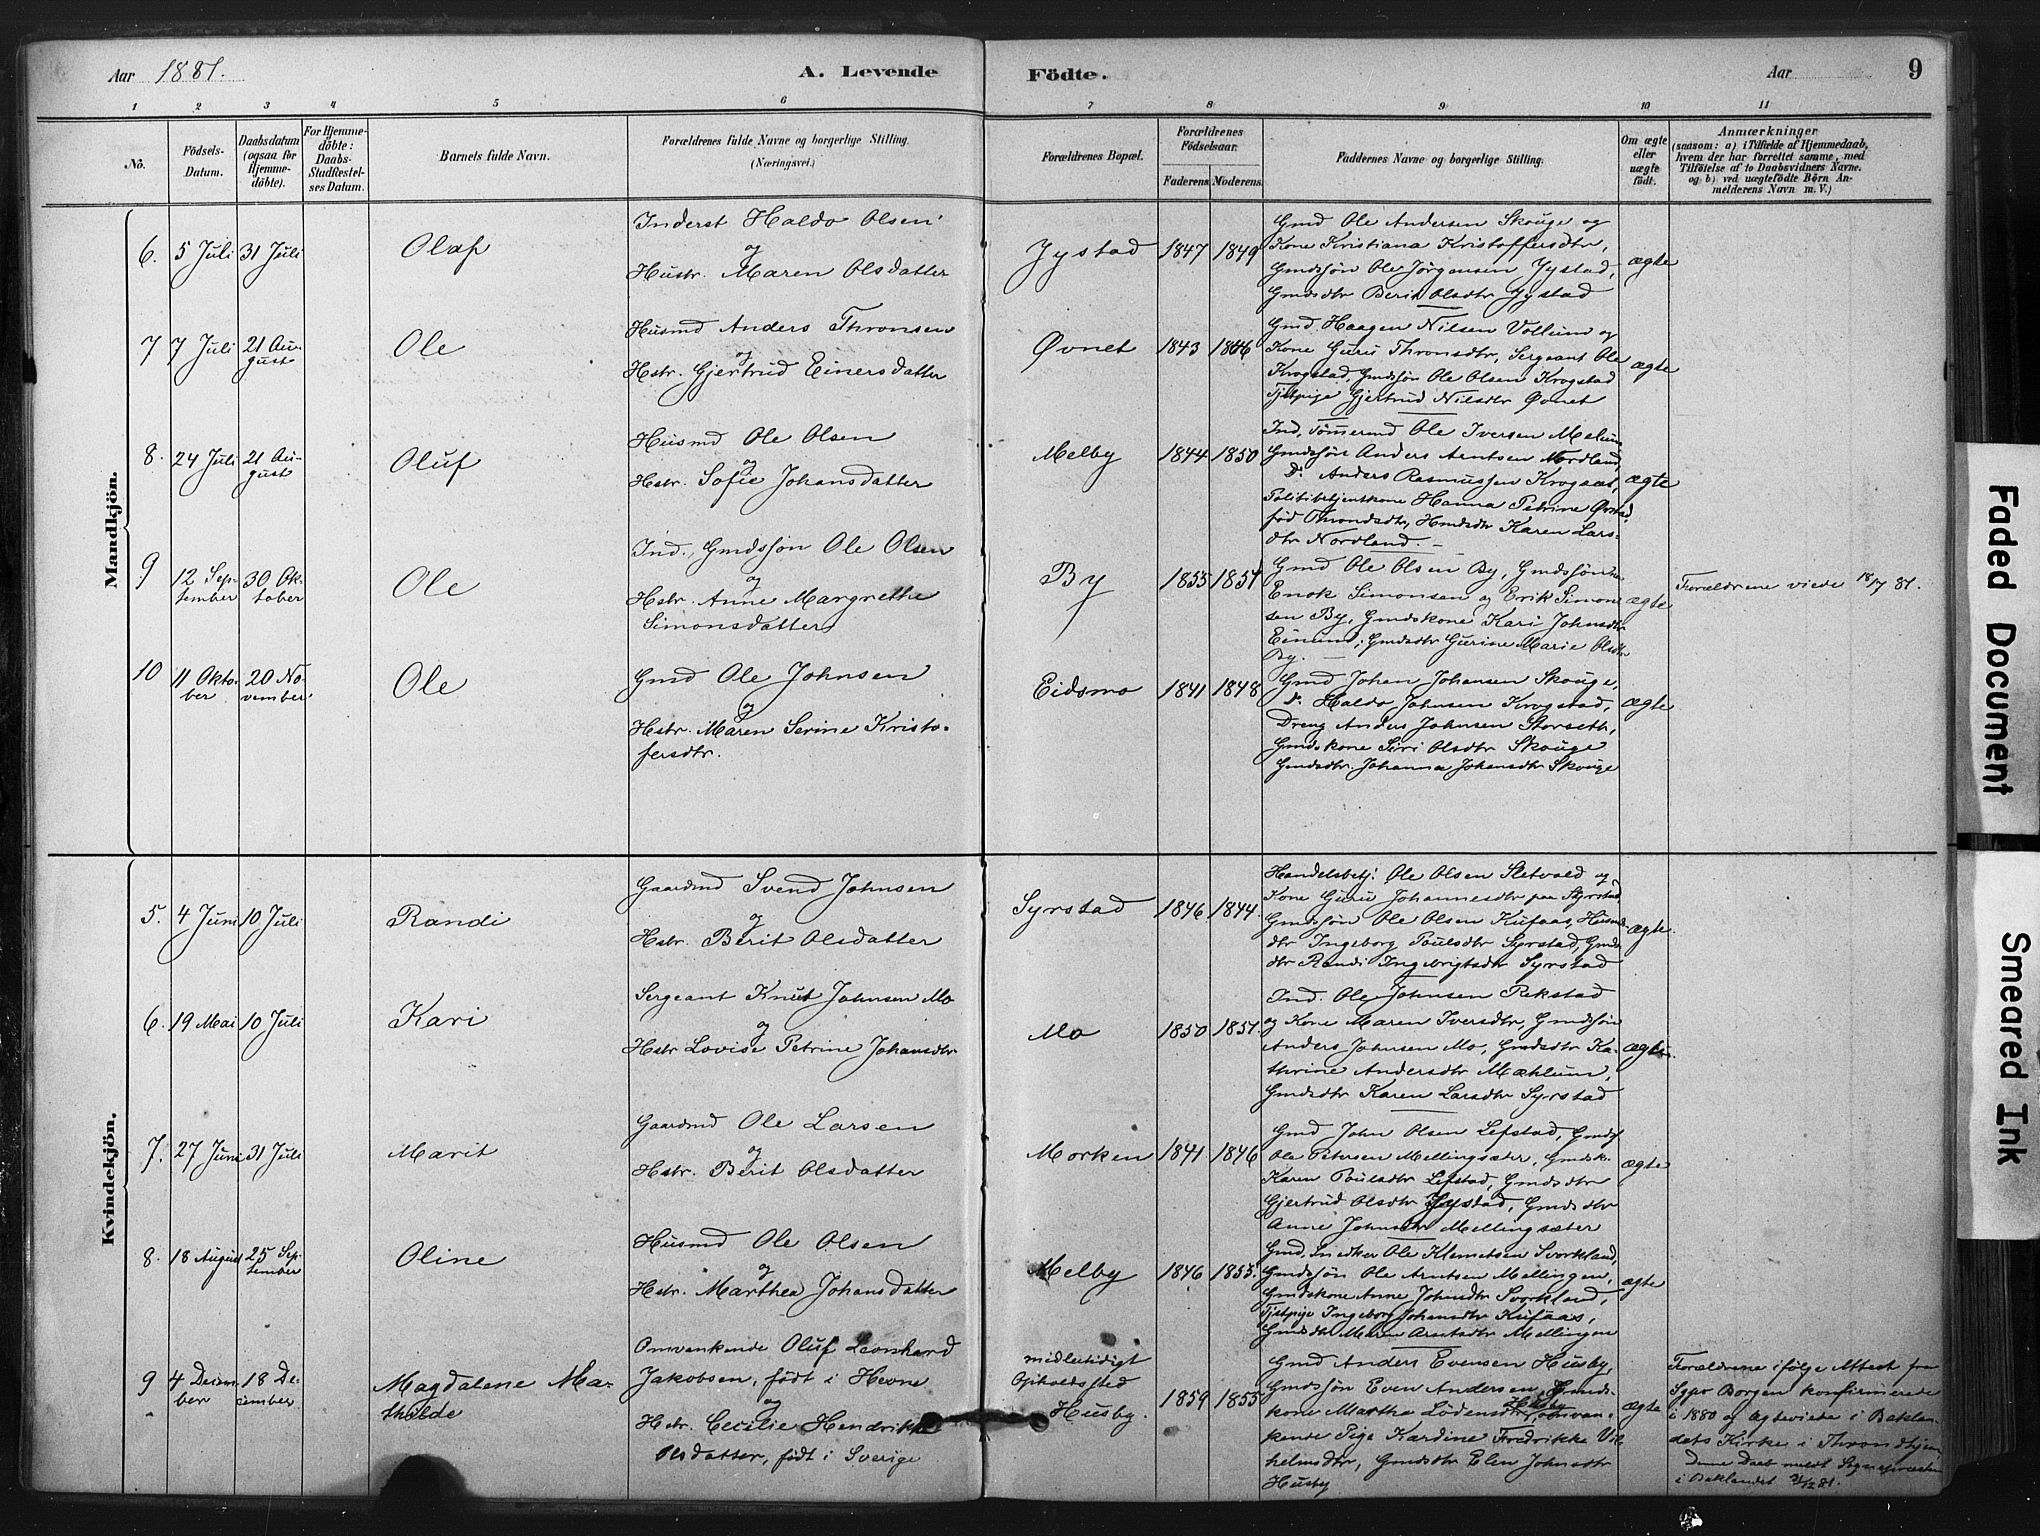 Aar 1881.
A. Levende
Födte.
Aar
9
1 2 3 4 5 6 7 8 9 10 11
No.
Födsels-
Datum.
Daabsdatum
(ogsaa for
Hjemme-
döbte).
For Hjemme-
döbte:
Daabs-
Stadfæstel-
ses Datum.
Barnets fulde Navn.
Forældrenes fulde Navne og borgerlige Stilling.
(Næringsvei.)
Forældrenes Bopæl.
Forældrenes
Födselsaar.
Faderens
Moderens
Faddernes Navne og borgerlige Stilling.
Om ægte
eller
uægte
födt.
Anmærkninger
(saasom: a) i Tilfælde af Hjemmedaab,
hvem der har forrettet samme, med
Tilföielse af to Daabsvidners Navne.
og b) ved uægtefödte Börn An-
melderens Navn m. V.)
Mandkjön.
6. 5 Juli 31 Juli
Olaf
Inderst Haldo Olsen
og
Hustr. Maren Olsdatter
Jystad 1847 1849
Gmd Ole Andersen Skouge og
Kone Kristiana Kristoffersdtr,
Gmdsjön Ole Jörgensen Jystad,
Gmdsdtr Berit Olsdtr Jystad
ægte
7 7 Juli 21 Au-
gust
Ole
Husmd Anders Thronsen
og
Hstr. Gjertrud Einersdatter
Øvnet 1843 1846
Gmd Haagen Nilsen Vollum og
Kone Guru Thronsdtr, Sergeant Ole
Krogstad, Gmdssjön Ole Olsen Krogstad
Tjstpige Gjertrud Nilsdtr Øvnet
ægte
8. 24 Juli 21 Au-
gust
Oluf
Husmd Ole Olsen
og
Hstr. Sofie Johansdatter
Melby 1844 1850
Ind, Tömmermd Ole Iversen Melum
Gmdssjön Anders Arntsen Nordland,
Do Anders Rasmussen Krogaas,
Politibetjentkone Hanna Petrine
föd Throndsdtr, Hmdsdtr Karen Lars-
dtr Nordland.
ægte
9 12 Sep-
tember 30 Ok-
tober
Ole
Ind., Gmdssjön Ole Olsen
og
Hstr. Anne Margrethe
Simonsdatter
By 1855 1857
Gmd Ole Olsen By, Gmdsjön
Enok Simonsen og Erik Simon-
sen By, Gmdskone Kari Johnsdtr
Einum, Gmdsdtr Gurine Marie Olsdtr
By.
ægte
Forældrene viede 18/7 81.
10 11 Okto-
ber 20 No-
vember
Ole
Gmd Ole Johnsen
og
Hstr. Maren Serine Kristo-
fersdtr.
Eidsmo 1841 1848
Gmd Johan Johansen Skouge,
Do Haldo Johnsen Krogstad,
Dreng Anders Johnsen Storseth,
Gmdskone Siri Olsdtr Skouge
Gmdsdtr. Johanna Johansdtr Skouge
ægte
Kvindekjön.
5. 4 Juni 10 Juli
Randi
Gaardmd Svend Johnsen
og
Hstr. Berit Olsdatter
Syrstad 1846 1844
Handelsbetj. Ole Olsen Sletvold og
Kone Guru Johannesdtr paa Syrstad
Gmdssjön Ole Olsen Kufaas, Husmds-
dtr Ingeborg Poulsdtr Syrstad, Gmds-
dtr Randi Ingebrigtsdtr Syrstad
ægte.
6. 19 Mai 10 Juli
Kari
Sergeant Knut Johnsen Mo
og
Hstr Lovise Petrine Johansdtr
Mo 1850 1851.
Ind. Ole Johnsen Rekstad
og Kone Maren Iversdtr, Gmdssjön
Anders Johnsen Mo, Gmdsdtr Ka-
thrine Andersdtr Mæhlum,
Gmdsdtr Karen Larsdtr Syrstad
ægte
7. 27 Juni 31 Juli
Marit
Gaardmd Ole Larsen
og
Hstr. Berit Olsdatter
Morken 1841 1846
Gmd John Olsen Lefstad, Gmds
Ole Petersen Mellingsæter, Gmdsk.
Karen Poulsdtr Lefstad, Gmdsdtr
Gjertrud Olsdtr Jystad, Gmdsdtr
Anne Johnsdtr Mellingsæter
ægte
8. 18 August 25 Sep-
tember
Oline
Husmd Ole Olsen
og
Hstr. Marthea Johansdatter
Melby 1846 1855.
Gmd, Snedker Ole Klemetsen Svorkland,
Gmdssjön Ole Arntsen Mellingen,
Gmdskone Anne Johnsdtr Svorkland,
Tjstpige Ingeborg Johansdtr Kufaas,
Gmdsdtr Arntsdtr Mellingen
ægte
9 4 Decem-
ber 18 De-
cember
Magdalene Ma-
thilde
Omvankende Oluf Leonhard
Jakobsen, födt i Hevne
og
Hstr. Cecilie Hendrikke
Olsdatter, födt i Sverige
midlertidigt
Opholdssted
Husby. 1859 1855
Gmd Anders Evensen Husby,
Gmdssjön Even Andersen, Gmds-
kone Martha Lödensdtr Husby, omvan-
kende Pige Kardine Fredrikke Vil-
helmsdtr, Gmdsdtr Elen Johnsdtr
Husby
ægte
Forældrene ifölge Attest fra
Sgpr Borgen konfirmerede
i 1880 og ægteviede i Bakklan-
dets Kirke i Throndhjem
Denne Daab meldt Sognepræsten
i Baklandet 31/12 81.
Faded Document
Smeared Ink